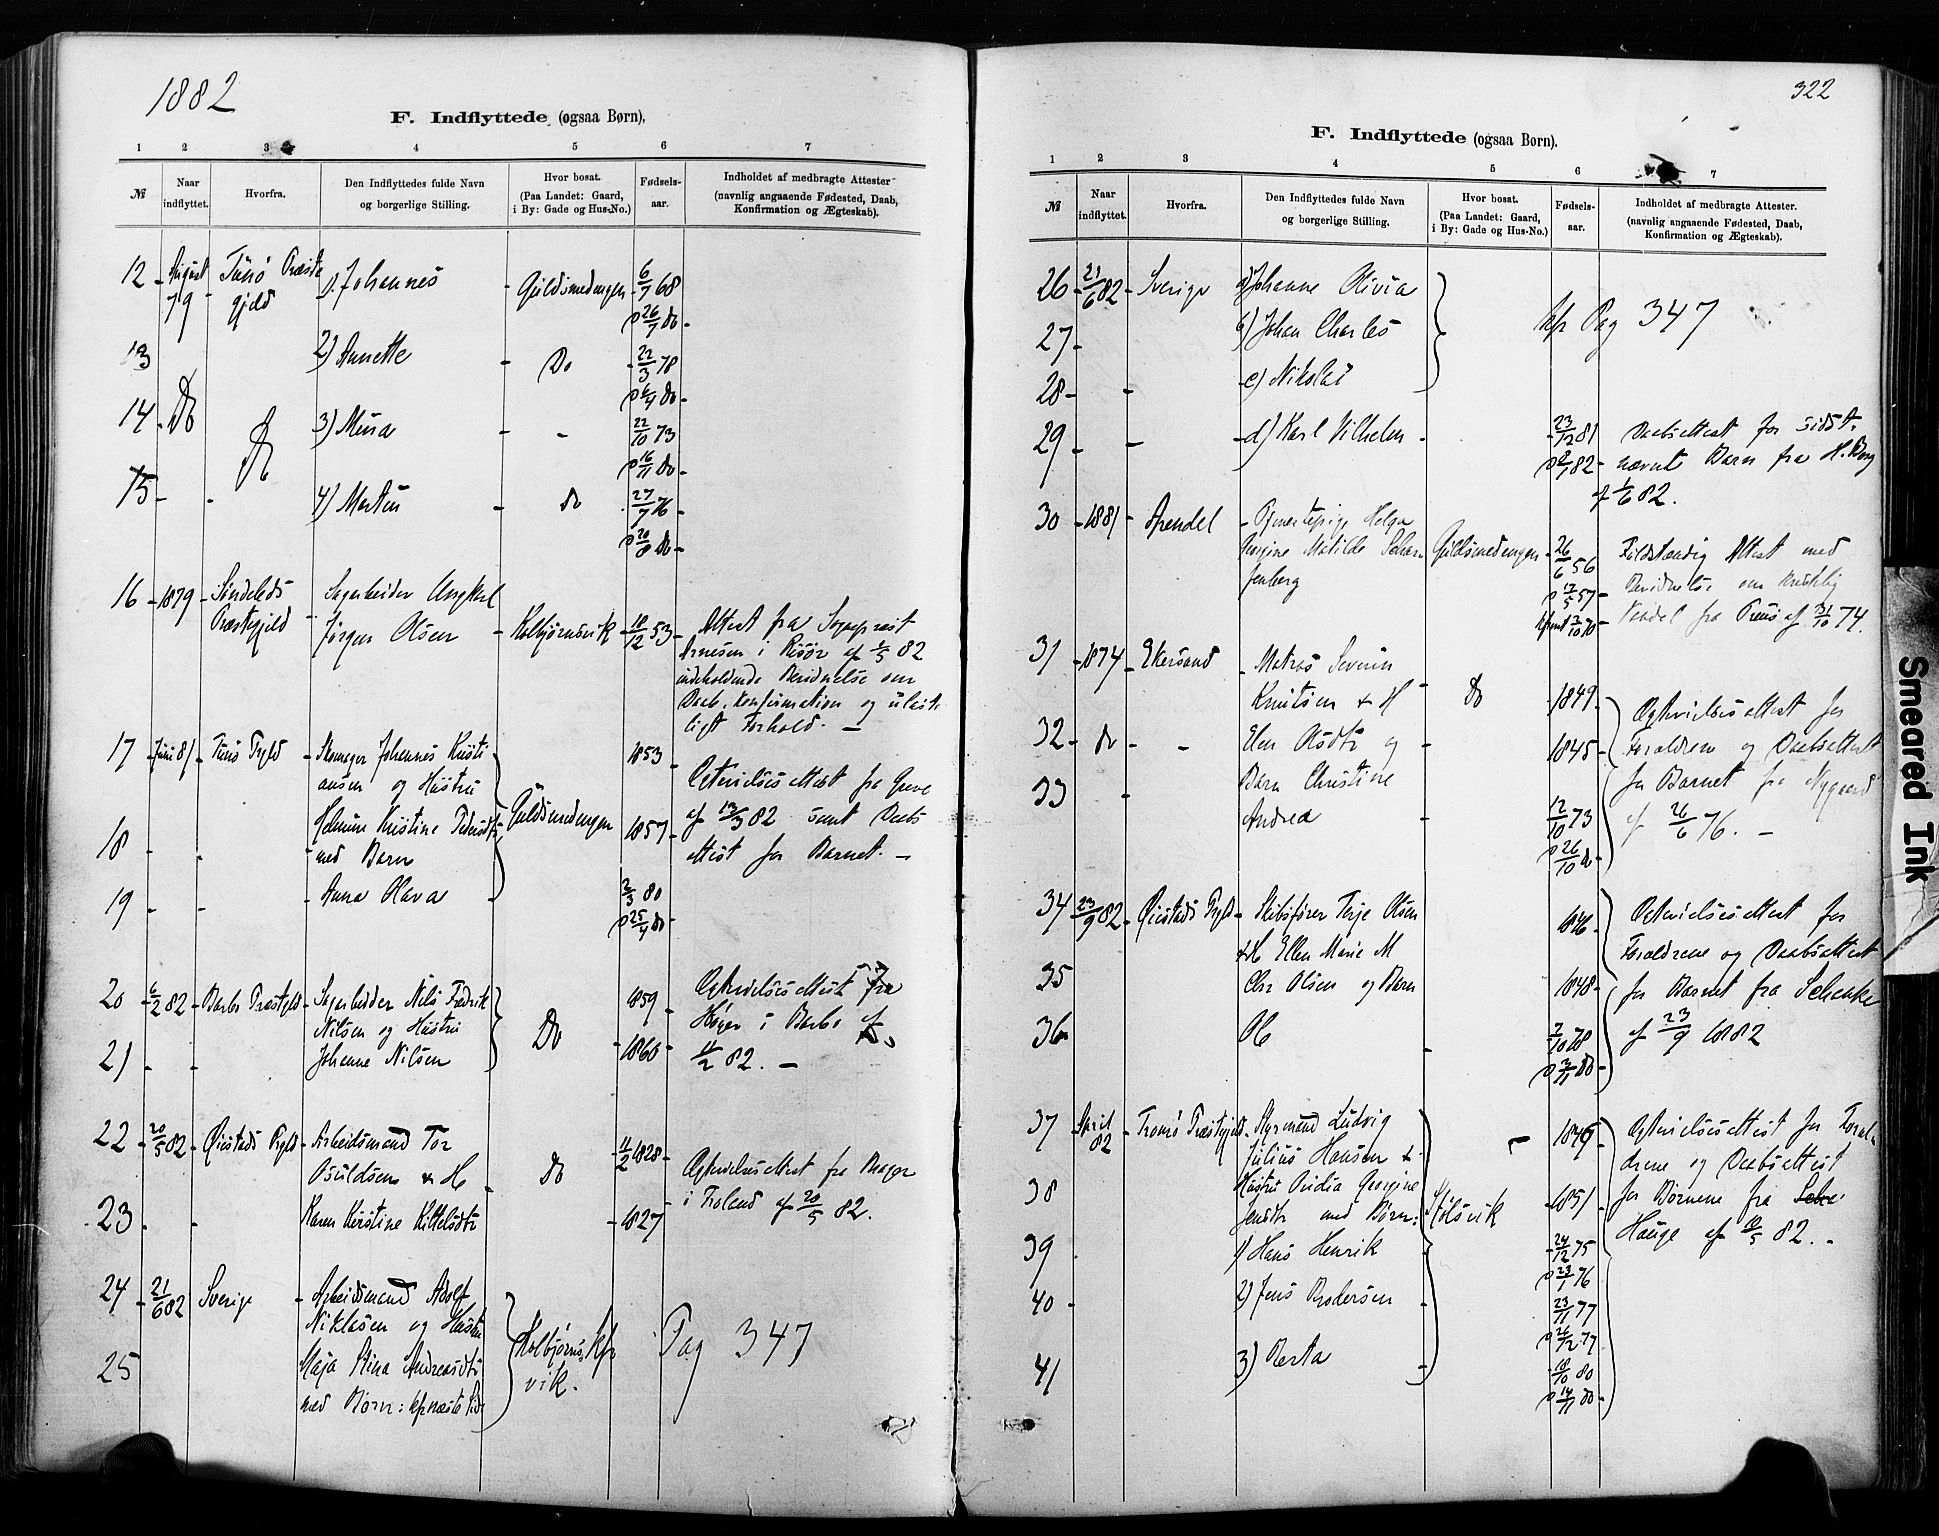 1882
F. Indflyttede (ogsaa Børn),
1 2 3 4 5 6 7
№
Naar indflyttet.
Hvorfra.
Den Indflyttedes fulde Navn og borgerlige Stilling.
Hvor bosat. (Paa Landet: Gaard, i By: Gade og Hus-No.)
Fødsels-aar.
Indholdet af medbragte Attester (navnlig angaaende Fødested, Daab, Konfirmation og Ægteskab).
12 August 79 Præste gjeld 1) Johannes Guldsmedengen 6/7 68
D 26/7 do
13 2) Annette Do 22/3 78
D 6/4 do
14 Do Do 3) Mina - 22/10 73
D 16/11 do
15 - - 4) do 27/7 76
D 20/8 do
16 1879 Søndeleds Præstegjeld Sagarbeider
Jørgen Olsen Kolbjørnsvik 10/12 53 Attest fra Sogneprest
Arnesen i Risør af 1/5 82
indeholdende Beridnelse om
Daab, Konfirmation og ulaste
ligt Forhold. —
17 Juni 81 Skomager Johannes Kristi
ansen og Hustru 1853
18 Kristine Pedersdtr Guldsmedengen 1857
med Barn
19 Anna Olava 2/3 80
D 25/4 do
af 13/3 82 samt Daabs
attest for Barnet. —
20 6/2 82 Barbo Præstgjeld Sagarbeider Nils Fredrik 1859
Nilsen og Hustru
21 Johanne Nilsen Do 1860
fra
Høyer i Barbo af
11/2 82. —
22 20/5 82 Øiestads Pgjeld Arbeidsmand Tor 11/2 1828
Osuldsen & H Do
23 Karen Kirstine Kittelsdtr 1827
i Froland af 20/5 82.
24 21/6 82 Sverige Arbeidsmand Adolf
Niklasen og Hustru
25 Maja Stina Andreasdtr Kolbjørns
vik.
med Børn:
Pag 347
322
F. Indflyttede (ogsaa Børn).
1 2 3 4 5 6 7
№
Naar indflyttet.
Hvorfra.
Den Indflyttedes fulde Navn og borgerlige Stilling.
Hvor bosat. (Paa Landet: Gaard, i By: Gade og Hus-No.)
Fødsels-aar.
Indholdet af medbragte Attester. (navnlig angaaende Fødested, Daab, Konfirmation og Ægteskab).
26 21/6 82 Sverige a) Johanne Olivia
27 b) Johan Charles
28 c) Nikolai
Pag 347
29 d) Karl Vilhelm 23/12 81 Daabsattest for sidst
D 2/1 82 nævnte Barn fra H. Berg
af 1/6 82.
30 1881 Arendal Tjenestepige Helga
Georgine Matilde Guldsmedengen 26/6 56 Fuldstændig Attest med
D 17/5 57
Vandel fra Tromø af 31/10 74.
31 1874 Ekersund Matros Severin
Knutsen & H Do 1849
32 do - Elen Olsdtr og 1845
33 Barn Christine
Andrea 12/10 73
D 26/10 do
Ægtevielsesattest for
Forældrene og Daabsattest
for Barnet fra Nygaard
af 26/6 76. —
34 23/9 82 Øiestads Pgjeld Skibsfører Terje Olsen 1846
& H Ellen Marie M
35 Olsen og Barn 1848
36 Ole 2/10 78
D 3/11 do
Ægtevielsesattest for
Forældrene og Daabsattest
for Barnet fra Schenke
af 23/9 1882
37 April 82 Tromø Præstegjeld Styrmand Ludvig 1849
Julius Hansen &
38 Hustru Georgine 1851
Jensdtr med Børn:
39 1) Hans Henrik 24/12 75
D 23/1 76
40 2) Jens Brodersen 23/11 77
D 26/12 77
41 3) Berta 10/10 80
D 14/11 80
Stølsvik
Ægtevielsesattest for Foræl
drene og Daabsattest
for Børnene fra
Hauge af 10/5 82. —
Smeared Ink